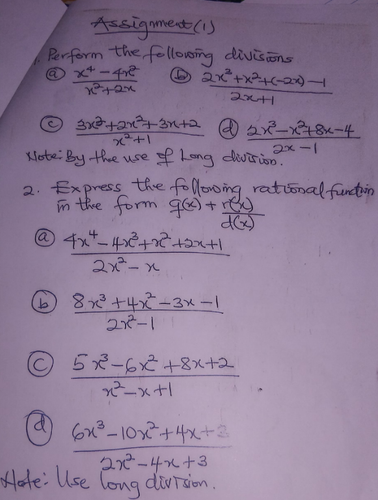 Assignment (1)
1. Perform the following divisions
(a) (x⁴ - 4x²)/(x² + 2x) (b) (2x³ + x² + (-2x) - 1)/(2x + 1)
(c) (3x³ + 2x² + 3x + 2)/(x² + 1) (d) (2x³ - x² + 8x - 4)/(2x - 1)
Note: By the use of Long division.
2. Express the following rational function
in the form q(x) + r(x)/d(x)
(a) (4x⁴ - 4x³ + x² + 2x + 1)/(2x² - x)
(b) (8x³ + 4x² - 3x - 1)/(2x² - 1)
(c) (5x³ - 6x² + 8x + 2)/(x² - x + 1)
(d) (6x³ - 10x² + 4x + 3)/(2x² - 4x + 3)
Note: Use long division.